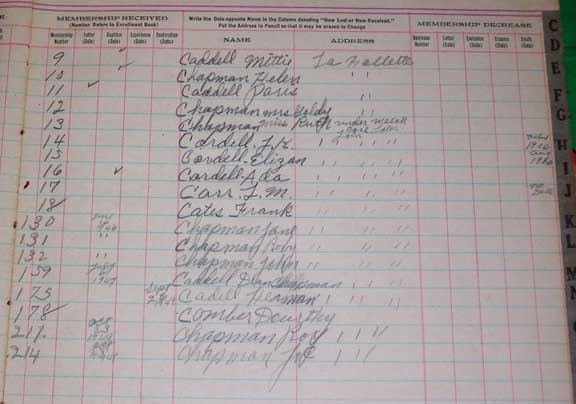 MEMBERSHIP RECEIVED
(Number Refers to Enrollment Book)
Write the Date opposite Name in the Column denoting "How Lost or How Received."
Put the Address in Pencil so that it may be erased to Change
MEMBERSHIP DECREASE
Membership Number Letter (Date) Baptism (Date) Experience (Date) Restoration (Date) NAME ADDRESS Decrease Number Letter (Date) Exclusion (Date) Erasure (Date) Death (Date)
9 Caddell Mittie La Follette
10 Chapman Helen " "
11 Caddell Paris
12 Chapman mrs Goldy " "
13 Chapman miss Ruth under watch care
14 Cordell J.
15 Cordell Elizan " " "
16 Cordell Ada " " "
17 Carr J. M. " " "
18 Cates Frank " " "
130 Chapman Jane " " "
131 " Chapman Roby " " "
132 " Chapman John " " "
159 July 1947 Caddell Dean Chapman " "
175 Sept Cadell Herman " " "
178 Comber Dourthy
211. Oct Chapman Roy " " "
214 Chapman " " "
C
D
E
F
G
H
I
J
K
L
M
N